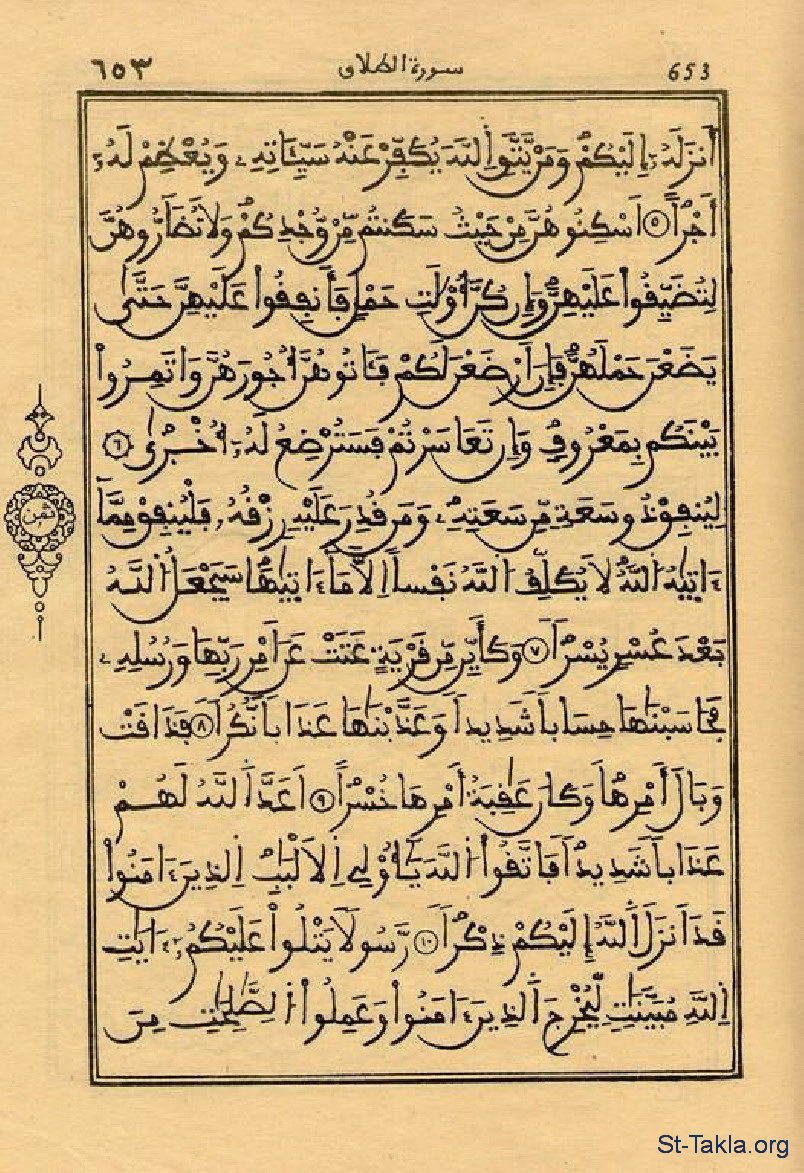 ٦٥٣ سورة الطلاق 653
أَنزَلَهُۥٓ إِلَيْكُمْ وَمَنْ يَّتَّقِ اللَّهَ يُكَفِّرْ عَنْهُ سَيِّـَٔاتِهِۦ وَيُعْظِمْ لَهُۥٓ
أَجْراً ٥ اَسْكِنُوهُنَّ مِنْ حَيْثُ سَكَنتُم مِّنْ وُّجْدِكُمْ وَلَا تُضَآرُّوهُنَّ
لِتُضَيِّقُواْ عَلَيْهِنَّ وَإِن كُنَّ أُوْلَٰتِ حَمْلٍ فَأَنفِقُواْ عَلَيْهِنَّ حَتَّىٰ
يَضَعْنَ حَمْلَهُنَّ فَإِنَ اَرْضَعْنَ لَكُمْ فَـَٔاتُوهُنَّ أُجُورَهُنَّ وَاتَمِرُواْ
بَيْنَكُم بِمَعْرُوفٍ وَإِن تَعَاسَرْتُمْ فَسَتُرْضِعُ لَهُۥٓ أُخْرَىٰ ٦
لِيُنفِقْ ذُو سَعَةٍ مِّن سَعَتِهِۦ وَمَن قُدِرَ عَلَيْهِ رِزْقُهُۥ فَلْيُنفِقْ مِمَّآ
ءَاتَيٰهُ اللَّهُ لَا يُكَلِّفُ اللَّهُ نَفْساً اِلَّا مَآ ءَاتَيٰهَا سَيَجْعَلُ اللَّهُ
بَعْدَ عُسْرٍ يُسْراً ٧ وَكَأَيِّن مِّن قَرْيَةٍ عَتَتْ عَنَ اَمْرِ رَبِّهَا وَرُسُلِهِۦ
فَحَاسَبْنَٰهَا حِسَاباً شَدِيداً وَعَذَّبْنَٰهَا عَذَاباً نُّكُراً ٨ فَذَاقَتْ
وَبَالَ أَمْرِهَا وَكَانَ عَٰقِبَةُ أَمْرِهَا خُسْراً ٩ اَعَدَّ اَللَّهُ لَهُمْ
عَذَاباً شَدِيداً فَاتَّقُواْ اللَّهَ يَٰٓأُوْلِي اِلَالْبَٰبِ اِلذِينَ ءَامَنُواْ
قَدَ اَنزَلَ اَللَّهُ إِلَيْكُمْ ذِكْراً ١٠ رَّسُولًا يَتْلُواْ عَلَيْكُمُۥٓ ءَايَٰتِ
اِللَّهِ مُبَيَّنَٰتٍ لِّيُخْرِجَ اَلذِينَ ءَامَنُواْ وَعَمِلُواْ اُلصَّٰلِحَٰتِ مِنَ
ثمن
St-Takla.org